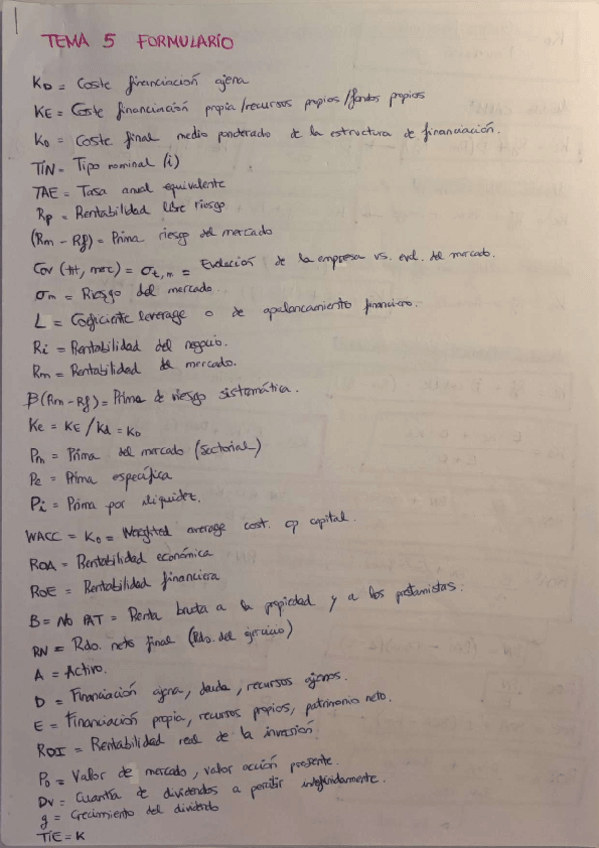 TEMA 5 FORMULARIO
KD = Coste financiación ajena
KE = Coste financiación propia/recursos propios/fondos propios
Ko = Coste final medio ponderado de la estructura de financiación.
TIN = Tipo nominal (i)
TAE = Tasa anual equivalente
Rf = Rentabilidad libre riesgo
(Rm - Rf) = Prima riesgo del mercado
Cov (tt, mec) = σt,m = Evolución de la empresa vs. evol. del mercado.
σm = Riesgo del mercado.
L = Coeficiente leverage o de apalancamiento financiero.
Ri = Rentabilidad del negocio.
Rm = Rentabilidad del mercado.
β(Rm - Rf) = Prima de riesgo sistemática.
Ke = KE / Kd = KD
Pm = Prima del mercado (sectorial)
Pe = Prima específica
Pi = Prima por iliquidez.
WACC = Ko = Weighted average cost. op capital.
ROA = Rentabilidad económica
ROE = Rentabilidad financiera
B = NO PAT = Renta bruta a la propiedad y a los prestamistas.
RN = Rdo. neto final (Rdo. del ejercicio)
A = Activo.
D = Financiación ajena, deuda, recursos ajenos.
E = Financiación propia, recursos propios, patrimonio neto.
ROI = Rentabilidad real de la inversión.
Po = Valor de mercado, valor acción presente.
Dv = Cuantía de dividendos a percibir indefinidamente.
g = Crecimiento del dividendo
TIE = K